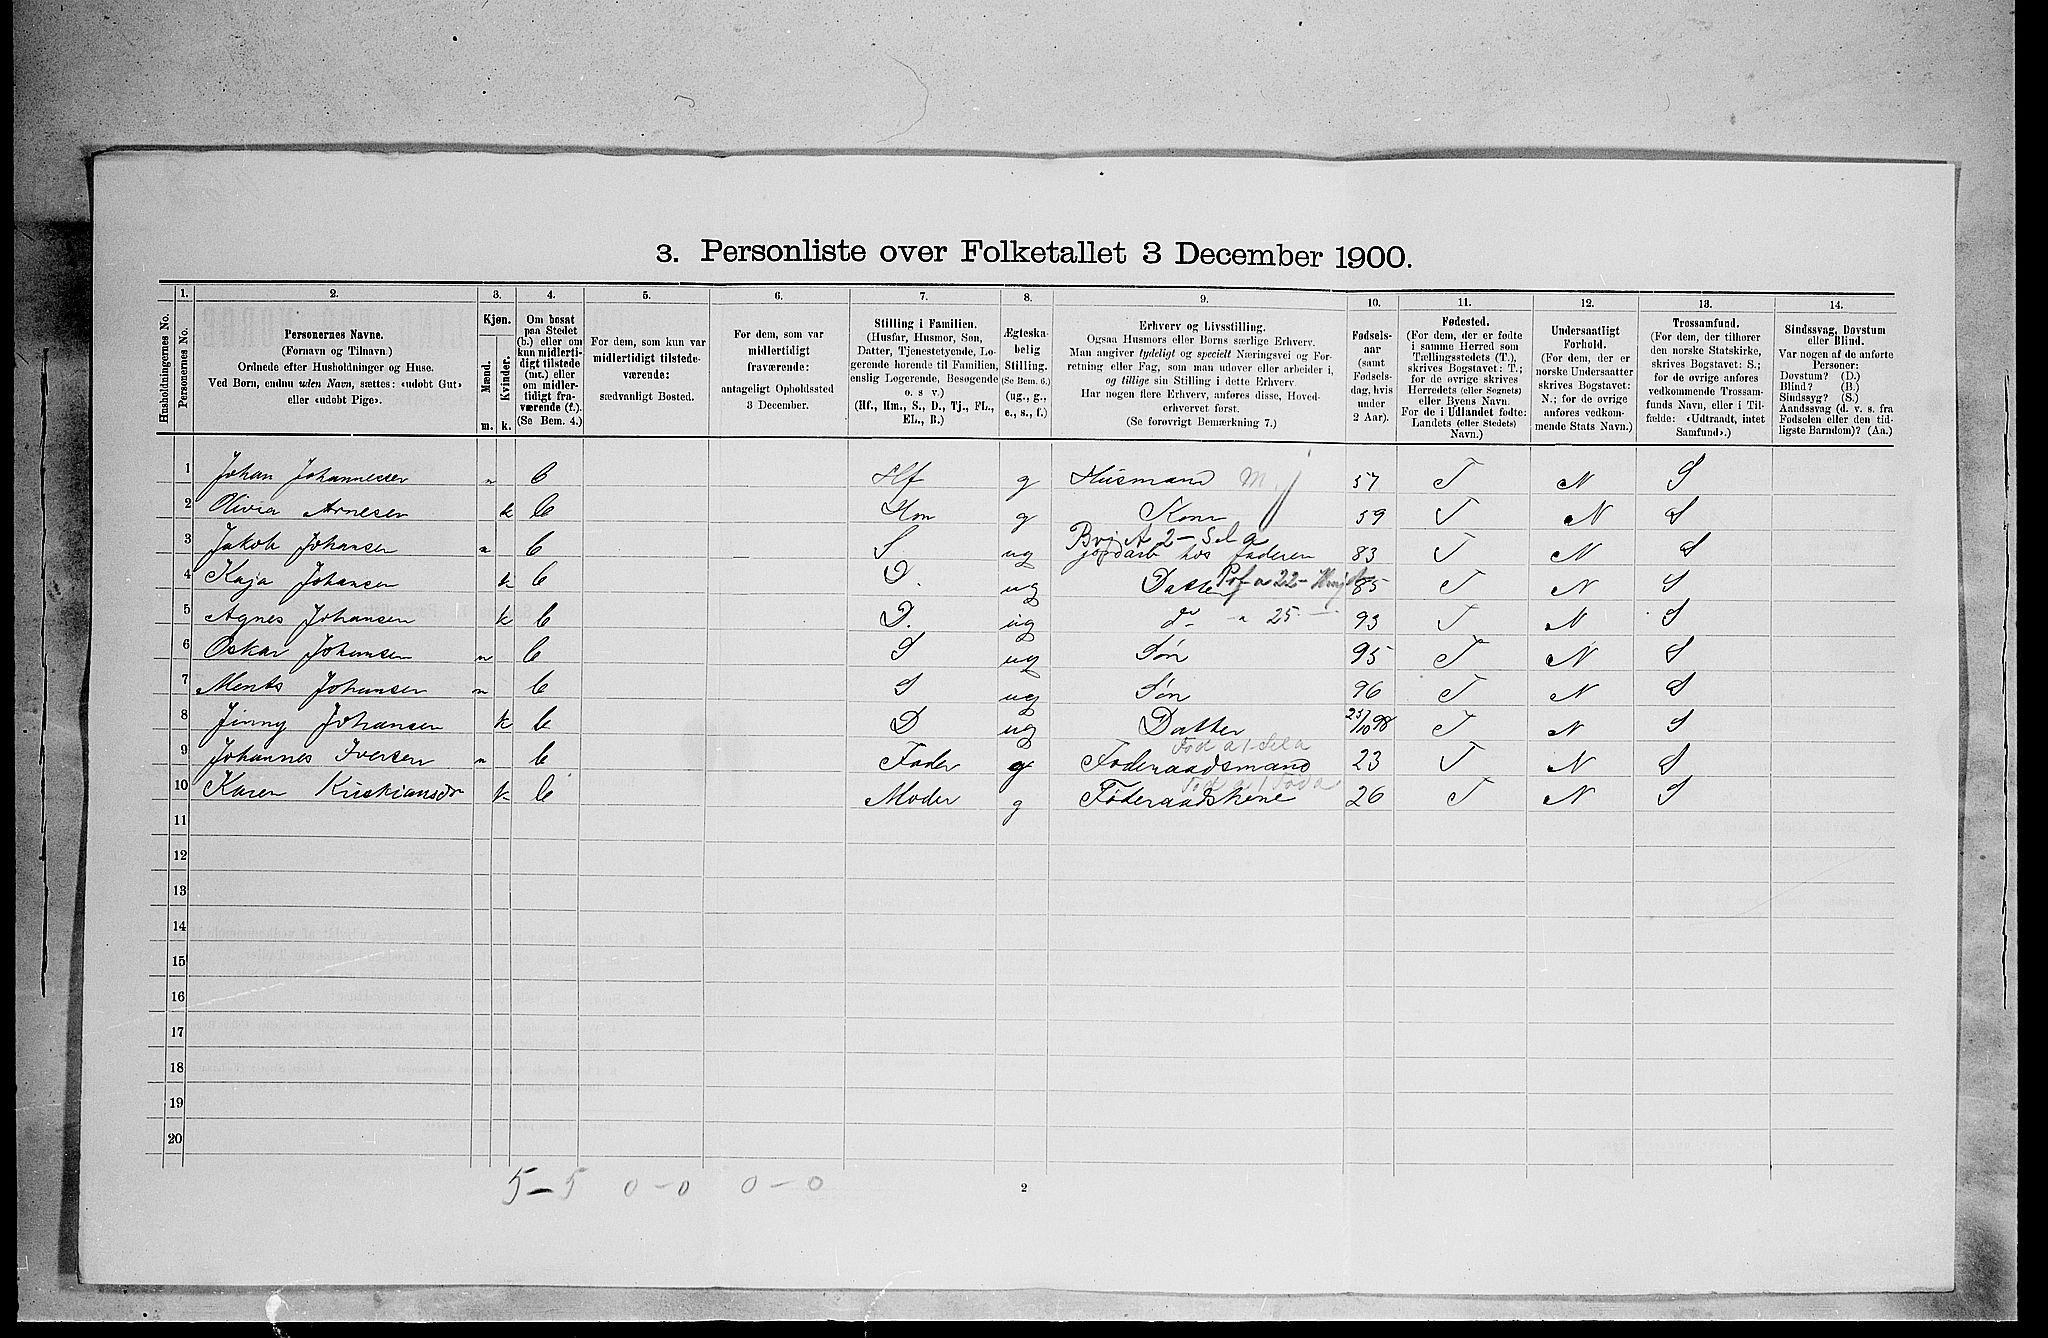 3. Personliste over Folketallet 3 December 1900.
Husholdningernes No.
1. Personernes No.
2. Personernes Navne. (Fornavn og Tilnavn.) Ordnede efter Husholdninger og Huse. Ved Børn, endnu uden Navn, sættes: «udøbt Gut» eller «udøbt Pige».
3. Kjøn. Mænd. m. Kvinder. k.
4. Om bosat paa Stedet (b.) eller om kun midlertidigt tilstede (mt.) eller om midlertidigt fraværende (f.). (Se Bem. 4.)
5. For dem, som kun var midlertidigt tilstedeværende: sædvanligt Bosted.
6. For dem, som var midlertidigt fraværende: antageligt Opholdssted 3 December.
7. Stilling i Familien. (Husfar, Husmor, Søn, Datter, Tjenestetyende, Logerende hørende til Familien, enslig Logerende, Besøgende o. s v.) (Hf., Hm., S., D., Tj., FL., EL., B.)
8. Ægteskabelig Stilling. (Se Bem. 6.) (ug., g., e., s., f.)
9. Erhverv og Livsstilling. Ogsaa Husmors eller Børns særlige Erhverv. Man angiver tydeligt og specielt Næringsvei og Forretning eller Fag, som man udøver eller arbeider i, og tillige sin Stilling i dette Erhverv. Har nogen flere Erhverv, anføres disse, Hovederhvervet først. (Se forøvrigt Bemærkning 7.)
10. Fødselsaar (samt Fødselsdag, hvis under 2 Aar).
11. Fødested. (For dem, der er fødte i samme Herred som Tællingsstedets (T.), skrives Bogstavet: T.; for de øvrige skrives Herredets (eller Sognets) eller Byens Navn. For de i Udlandet fødte: Landets (eller Stedets) Navn.)
12. Undersaatligt Forhold. (For dem, der er norske Undersaatter skrives Bogstavet: N.; for de øvrige anføres vedkommende Stats Navn.)
13. Trossamfund. (For dem, der tilhører den norske Statskirke, skrives Bogstavet: S.; for de øvrige anføres vedkommende Trossamfunds Navn, eller i Tilfælde: «Udtraadt, intet Samfund».)
14. Sindssvag, Døvstum eller Blind. Var nogen af de anførte Personer: Døvstum? (D.) Blind? (B.) Sindssyg? (S.) Aandssvag (d. v. s. fra Fødselen eller den tidligste Barndom)? (Aa.)
1 Johan Johannesen m b Hf g Husmand m.j 57 T N S
2 Olivia Arnesen k b Hm g Kone 59 T N S
3 Jakob Johansen m b S ug jordarb hos faderen 83 T N S
4 Kaja Johansen k b D. ug Datter 85 T N S
5 Agnes Johansen k b D. ug do 25 93 T N S
6 Oskar Johansen m b S ug Søn 95 T N S
7 Ments Johansen m b S ug Søn 96 T N S
8 Jinny Johansen k b D ug Datter 23/10 98 T N S
9 Johannes Iversen m b Fader g Føderaadsmand 23 T N S
10 Karen Kristiansdr k b Moder g Føderaadskone 26 T N S
11
12
13
14
15
16
17
18
19
20
5 - 5 0 - 0 0 - 0
2